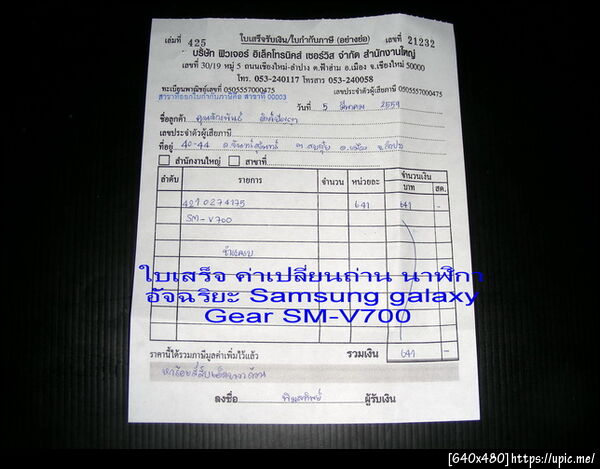 เล่มที่ 425 ใบเสร็จรับเงิน/ใบกำกับภาษี (อย่างย่อ) เลขที่ 21232
บริษัท ฟิวเจอร์ อิเล็คโทรนิคส์ เซอร์วิส จำกัด สำนักงานใหญ่
เลขที่ 30/19 หมู่ 5 ถนนเชียงใหม่-ลำปาง ต.ฟ้าฮ่าม อ.เมือง จ.เชียงใหม่ 50000
โทร. 053-240117 โทรสาร 053-240058
ทะเบียนพาณิชย์เลขที่ 0505557000475 เลขประจำตัวผู้เสียภาษี 0505557000475
สาขาที่ออกใบกำกับภาษีคือ สาขาที่ 00003
วันที่ 5 2559
ชื่อลูกค้า
เลขประจำตัวผู้เสียภาษี
ที่อยู่ 40-44
สำนักงานใหญ่ สาขาที่
ลำดับ รายการ จำนวน หน่วยละ จำนวนเงิน
บาท สต.
4210274175 641 641 -
SM-V700
ใบเสร็จ ค่าเปลี่ยนถ่าน นาฬิกา
อัจฉริยะ Samsung galaxy
Gear SM-V700
ราคานี้ได้รวมภาษีมูลค่าเพิ่มไว้แล้ว รวมเงิน 641 -
หกร้อยสี่สิบเอ็ดบาทถ้วน
ลงชื่อ ผู้รับเงิน
[640x480]https://upic.me/